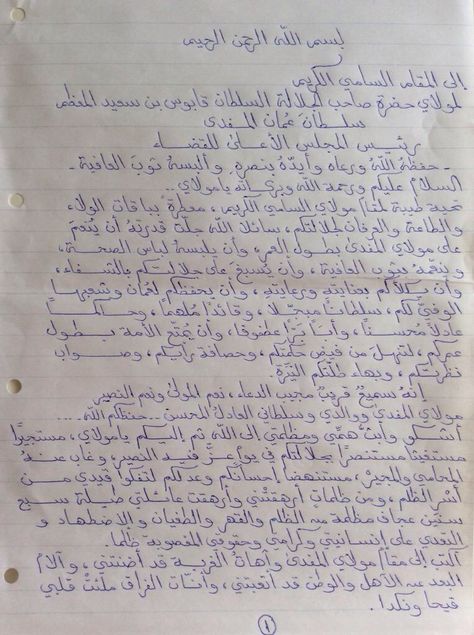 بسم الله الرحمن الرحيم
إلى المقام السامي الكريم
لمولاي حضرة صاحب الجلالة السلطان قابوس بن سعيد المعظم
سلطان عُمان المفدى
رئيس المجلس الأعلى للقضاء
- حفظهُ اللهُ ورعاه وأيّدهُ بنصرهِ، وألبسهُ ثوبَ العافية -
السلامُ عليكم ورحمة الله وبركاته يا مولاي ..
تحية طيبة لمقام مولاي السامي الكريم، معطرةً بباقات الولاء،
والطاعة والعرفان لجلالتكم، سائلا الله جلّت قدرتهُ أن يُنعمَ
على مولاي المفدى بطول العمر، وأن يلبسهُ لباس الصحة،
و بثوب العافية، وأن يُسبغ على جلالتكم بالشفاء،
وأن يكلأكم بعنايته ورعايته، وأن يحفظكم لعُمان وشعبها
الوفيّ لكم، سلطاناً مبجلاً، وقائداً مُلهماً، وحاكماً
عادلاً مُحسناً، وأباً برّاً عطوفاً، وأن يُمتّع الأمة بطول
عمركم، لتنهلَ من فيض حكمتكم، وحصافة رأيكم، وصواب
نظرتكم، وبهاء طلّتكم النيّرة.
إنهُ سميعٌ قريبٌ مجيب الدعاء، نعم المولى ونعم النصير
مولاي المفدى ووالدي وسلطاني العادلُ المحسن .. حفظكم الله ....
أشكو وأبثُّ همّي ومظلمتي إلى الله ثم إليكم يا مولاي، مستجيرًا
مستغيثاً مستنصراً بجلالتكم في يومٍ عزَّ فيه النصير، وغاب عنهُ
المحامي والمجيرُ، مستنهضاً إحسانكم وعدلكم لتفكّوا قيدي من
أسْر الظلم، ومن ظلماتٍ أرهقتْني وأرهقت عائلتي طيلة سبع
سنين عجاف مظلمة من الظلم والقهر والطغيان والإضطهاد و
التعدي على إنسانيتي وكرامتي وحقوقي المغصوبة ظلما.
أكتب إلى مقام مولاي المفدى وآهات الغربة قد أضنتني، وآلامُ
البعد عن الأهل والوطن قد أتعبتني، وأنّات الفراق ملئتْ قلبي
قيحا ونكدا.
١